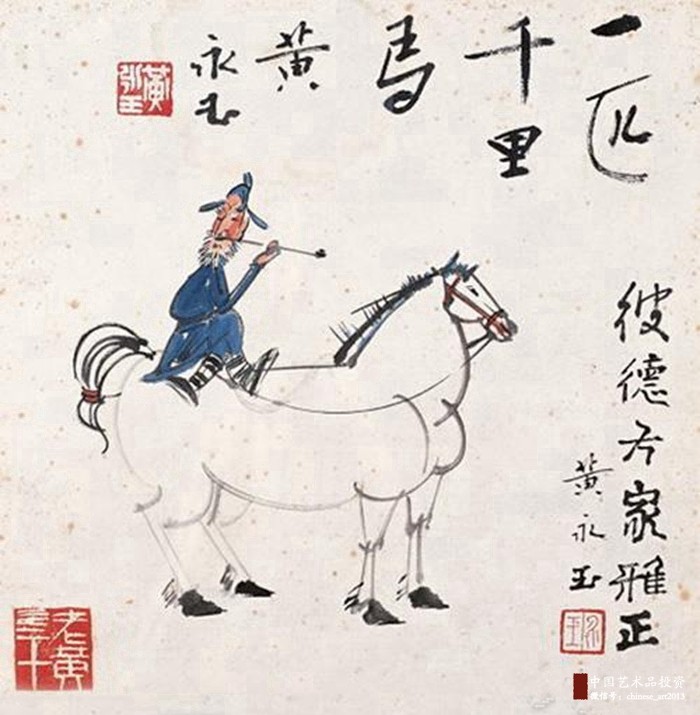 一匹
千里
馬
黄
永玉
黄永玉
彼德方家雅正
黄永玉
永玉
老黄
中国艺术品投资
微信号：chinese_art2013